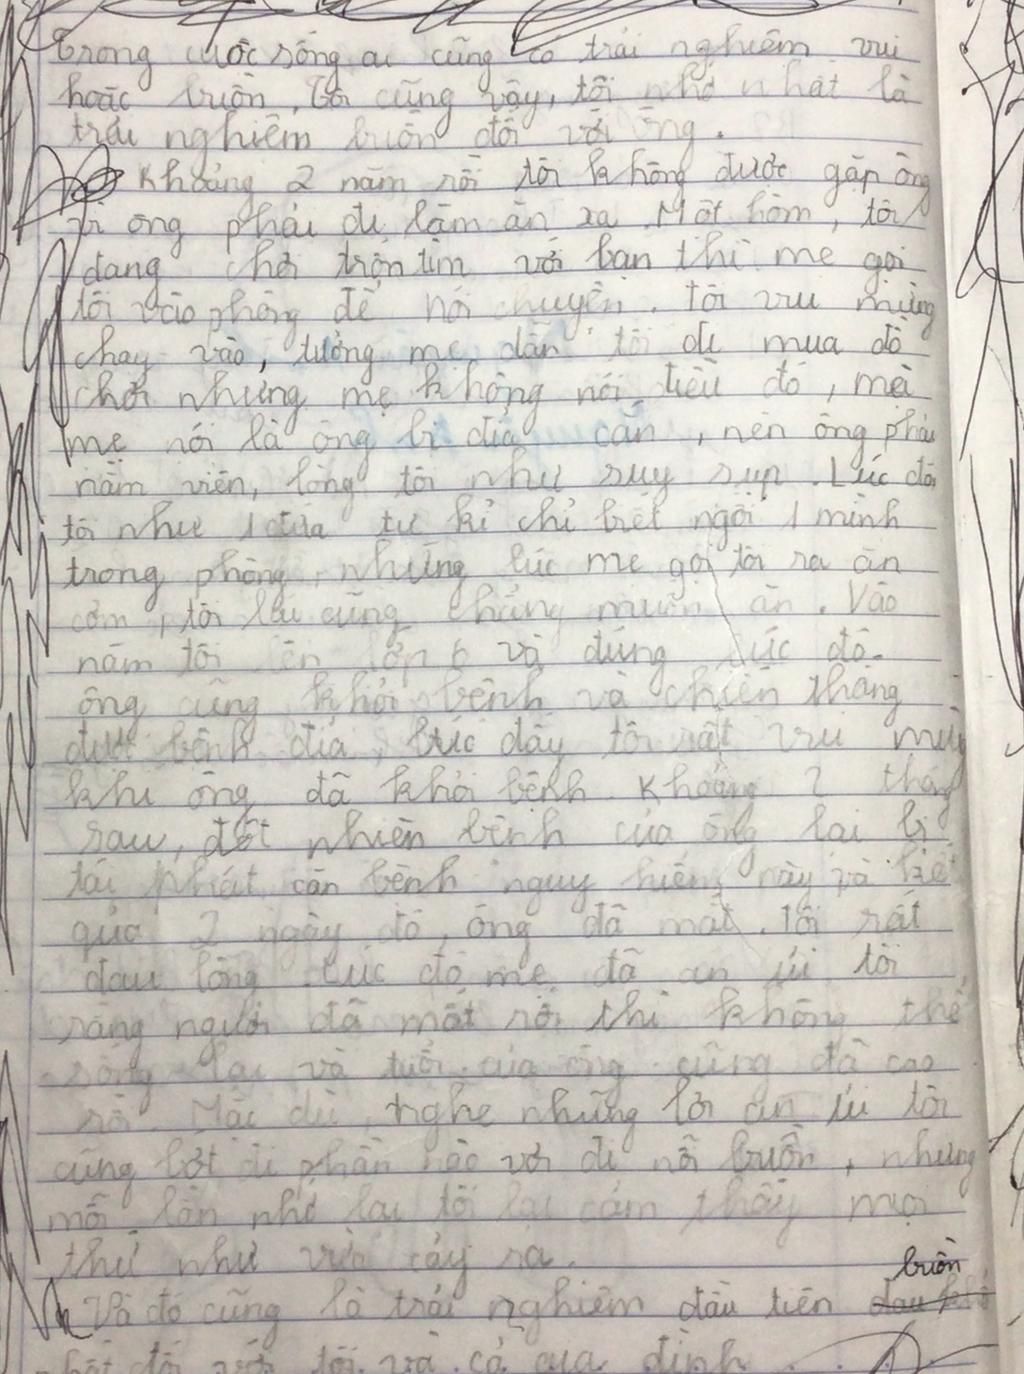 Trong cuộc sống ai cũng có trải nghiêm vui
hoặc buồn, tôi cũng vậy, tôi nhớ nhất là
trải nghiêm buồn đối với ông.
Khoảng 2 năm rồi tôi không được gặp ông
vì ông phải đi làm ăn xa. Một hôm, tôi
đang chơi trốn tìm với bạn thì mẹ gọi
tôi vào phòng để nói chuyện. tôi vui mừng
chạy vào, tưởng mẹ dẫn tôi đi mua đồ
chơi nhưng mẹ không nói điều đó, mà
mẹ nói là ông bị đĩa cắn, nên ông phải
nằm viện, lòng tôi như suy sụp. Lúc đó
tôi như 1 đứa tự kỉ chỉ biết ngồi 1 mình
trong phòng, những lúc mẹ gọi tôi ra ăn
cơm, tôi lại cũng chẳng muốn ăn. Vào
năm tôi lên lớp 6 và đúng lúc đó.
ông cũng khỏi bệnh và chiến thắng
được bệnh đĩa, lúc đấy tôi rất vui mừng
khi ông đã khỏi bệnh. Khoảng 2 tháng
sau, đột nhiên bệnh của ông lại bị
tái phát căn bệnh nguy hiểm này và kết
quả 2 ngày đó, ông đã mất. tôi rất
đau lòng. Lúc đó mẹ đã an ủi tôi
rằng người đã mất rồi thì không thể
sống lại và tuổi của ông cũng đã cao
rồi. Mặc dù, nghe những lời an ủi tôi
cũng bớt đi phần nào vơi đi nỗi buồn, nhưng
mỗi lần nhớ lại tôi lại cảm thấy mọi
thứ như vừa cảy ra.
buồn
Và đó cũng là trải nghiêm đầu tiên
nhất đối với tôi và cả gia đình.